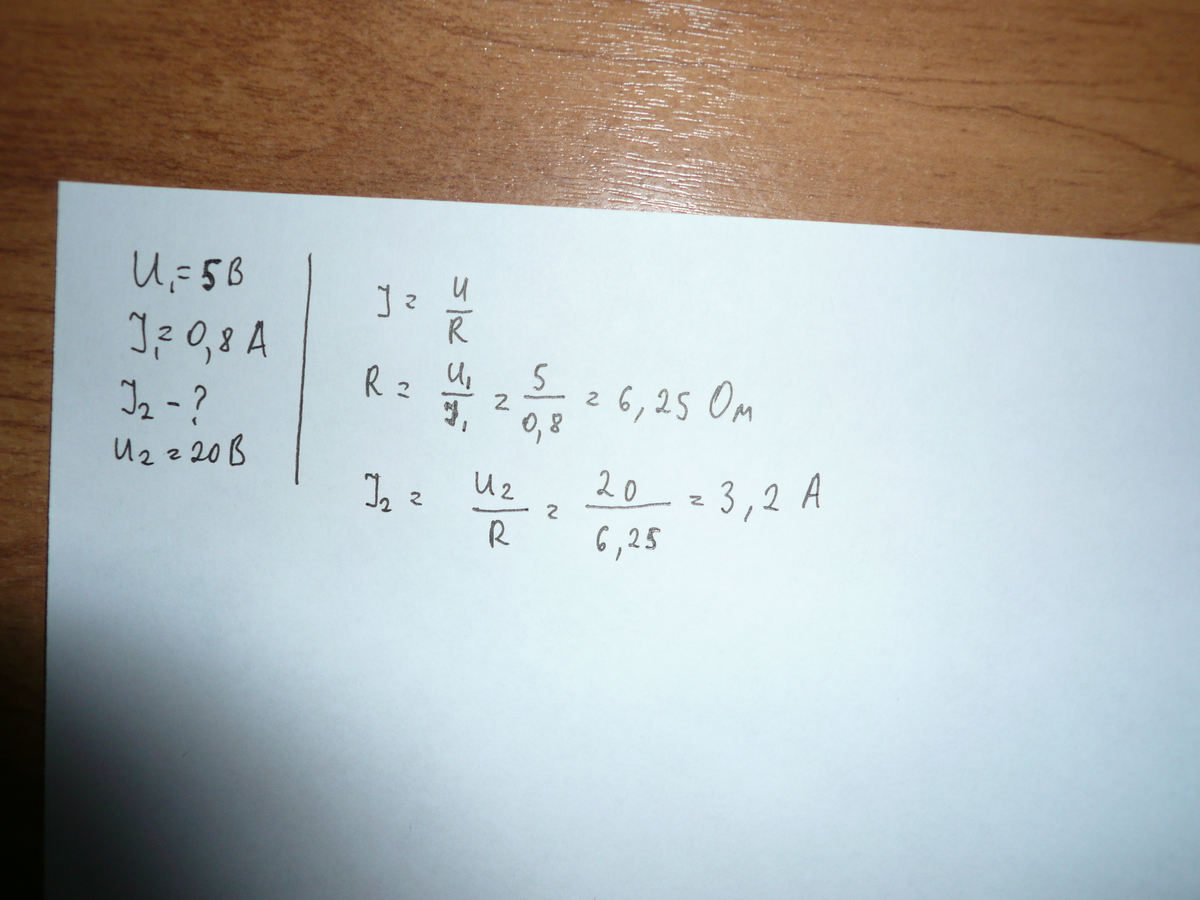 U₁ = 5 В
I₁ = 0,8 А
I₂ - ?
U₂ = 20 В
I = U/R
R = U₁/I₁ = 5/0,8 = 6,25 Ом
I₂ = U₂/R = 20/6,25 = 3,2 А